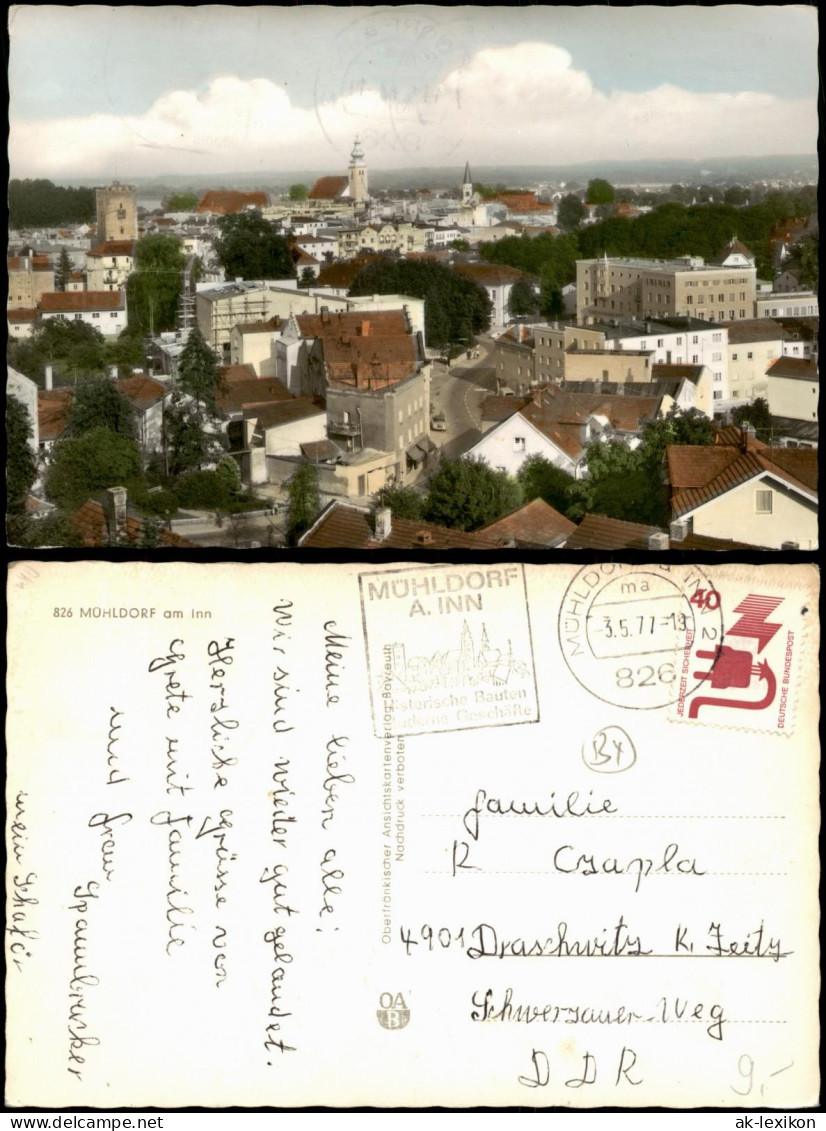 826 MÜHLDORF am Inn
Meine lieben alle!
Wir sind wieder gut gelandet.
Herzliche Grüsse von
Grete mit Familie
und Frau
mein
Oberfränkischer Ansichtskartenverlag Bayreuth
Nachdruck verboten
OA
B
MÜHLDORF
A. INN
Historische Bauten
moderne Geschäfte
MÜHLDORF a INN 2
ma
-3.5.77-19
826
40
JEDERZEIT SICHERHEIT
DEUTSCHE BUNDESPOST
BY
Familie
R Czapla
4901 Draschwitz K. Zeitz
Schwerzauer-Weg
DDR
9,-
www.ansichtskarten-lexikon.de
ak-lexikon.com